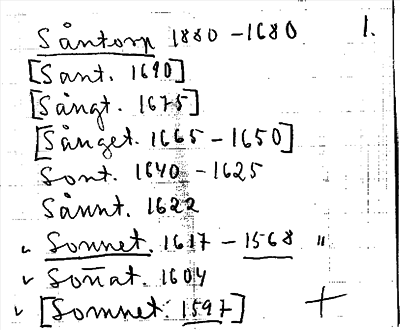 Såntorp 1880 - 1680 1.
[Sant. 1690]
[Sångt. 1675]
[Sånget. 1665 - 1650]
Sont. 1640 - 1625
Sånnt. 1622
v Sonnet. 1617 - 1568 "
v Son̄at. 1604
v [Somnet. 1597] +